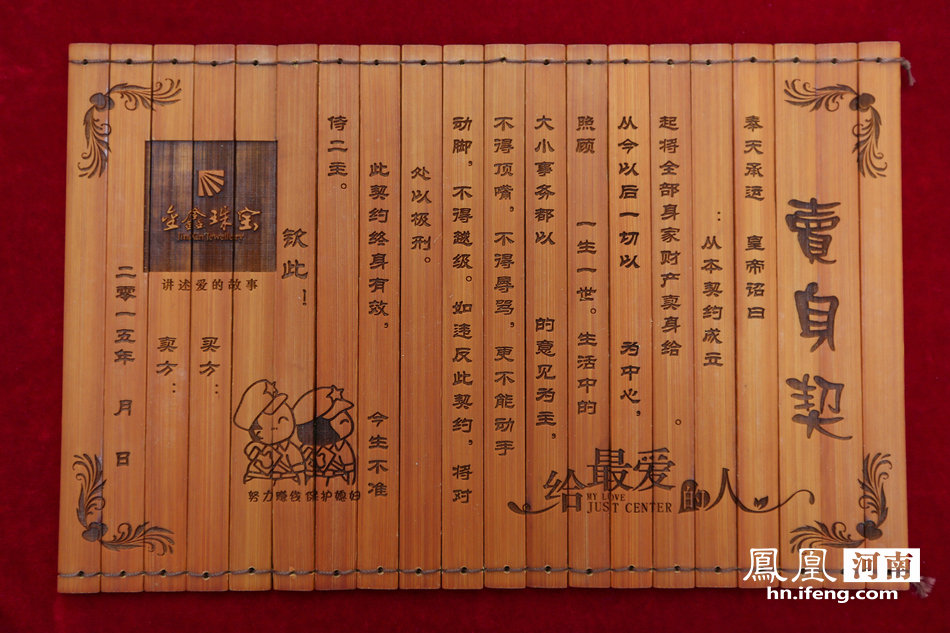 賣身契
奉天承运 皇帝诏曰
：从本契约成立
起将全部身家财产卖身给 。
从今以后一切以 为中心，
照顾 一生一世。生活中的
大小事务都以 的意见为主，
不得顶嘴，不得辱骂，更不能动手
动脚，不得越级。如违反此契约，将对
处以极刑。
此契约终身有效， 今生不准
侍二主。
钦此！
买方：
卖方：
二零一五年 月 日
金鑫珠宝
JinXin Jewellery
讲述爱的故事
努力赚钱 保护媳妇
给最爱的人
MY LOVE
JUST CENTER
鳳凰 河南
hn.ifeng.com